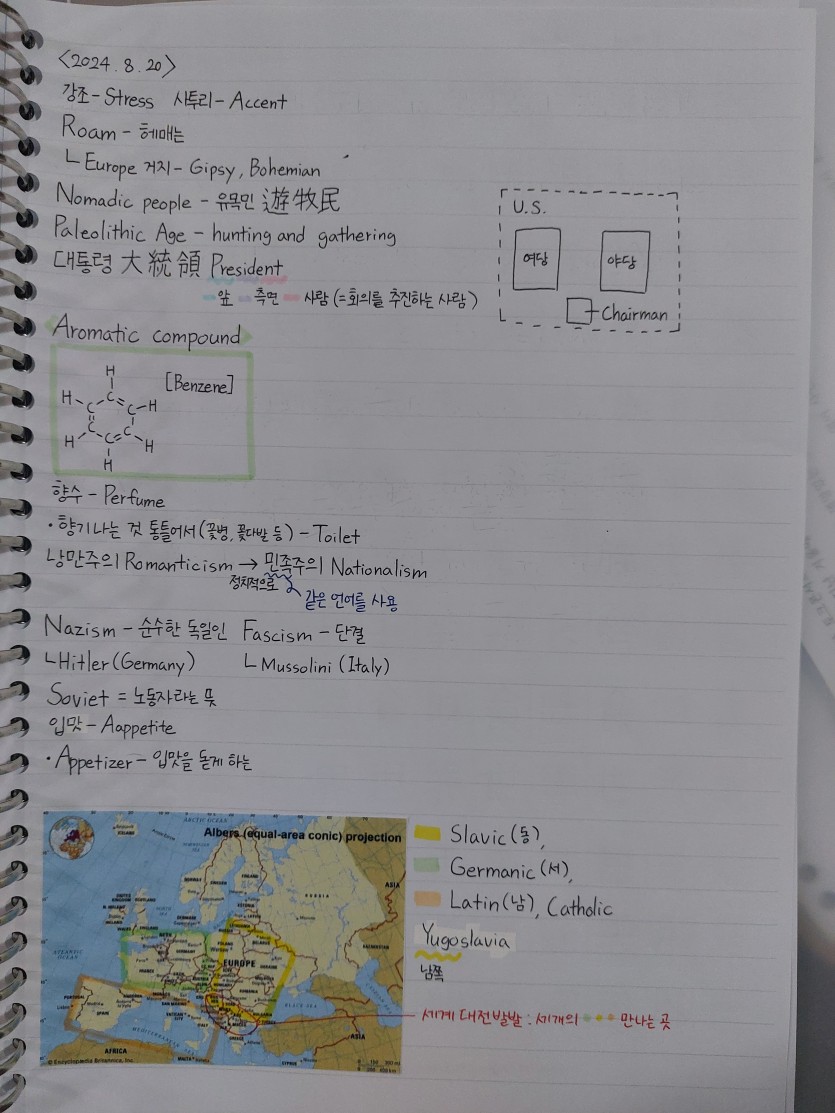 <2024.8.20>
강조-Stress 사투리-Accent
Roam - 헤매는
└Europe 거지-Gipsy, Bohemian
Nomadic people - 유목민 遊牧民
Paleolithic Age - hunting and gathering
대통령 大統領 President
앞 측면 사람(=회의를 추진하는 사람)
U.S.
여당 야당
Chairman
Aromatic compound
[Benzene]
H
H C H
C C
C C
H C H
H
향수 - Perfume
·향기나는 것 통틀어서(꽃병, 꽃다발 등) - Toilet
낭만주의 Romanticism → 민족주의 Nationalism
정치적으로 같은 언어를 사용
Nazism - 순수한 독일인 Fascism - 단결
└Hitler(Germany) └Mussolini (Italy)
Soviet = 노동자라는 뜻
입맛-Aappetite
·Appetizer - 입맛을 돋게 하는
Albers (equal-area conic) projection
ARCTIC OCEAN
ICELAND
NORWAY
FINLAND
RUSSIA
ASIA
ESTONIA
LITHUANIA
DENMARK
ENGLAND
ATLANTIC OCEAN
POLAND
BELARUS
GERMANY
EUROPE
UKRAINE
FRANCE
ROMANIA
KAZAKHSTAN
PORTUGAL
SPAIN
ITALY
BLACK SEA
MEDITERRANEAN SEA
GREECE
ASIA
AFRICA
MALTA
CYPRUS
© Encyclopædia Britannica, Inc.
Slavic(동),
Germanic(서),
Latin(남), Catholic
Yugoslavia
남쪽
세계 대전발발 : 세개의 만나는 곳